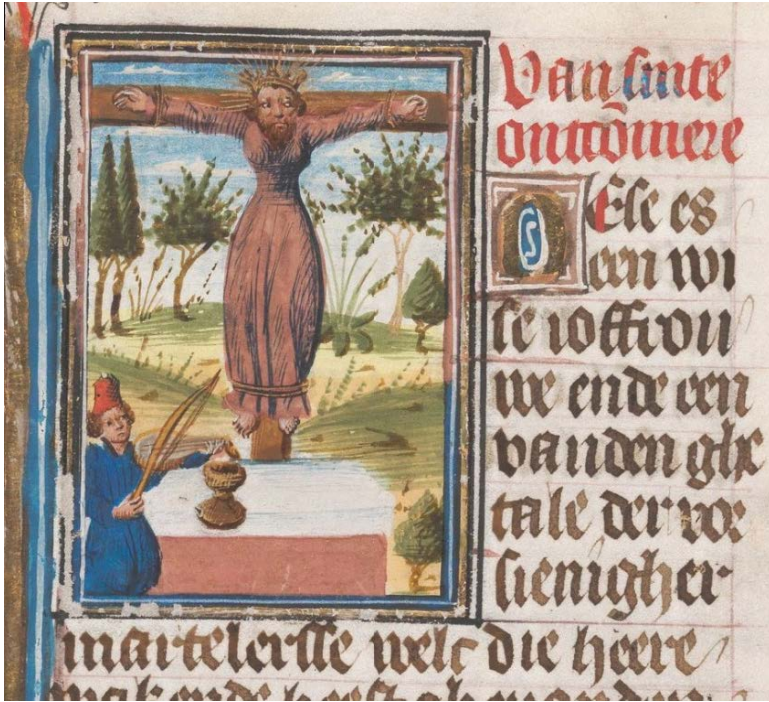 Van sinte
ontcomere
Dese es
een wi
se ioffrou
we ende een
vanden ghe
tale der voe
sienigher
martelersse welc die heere